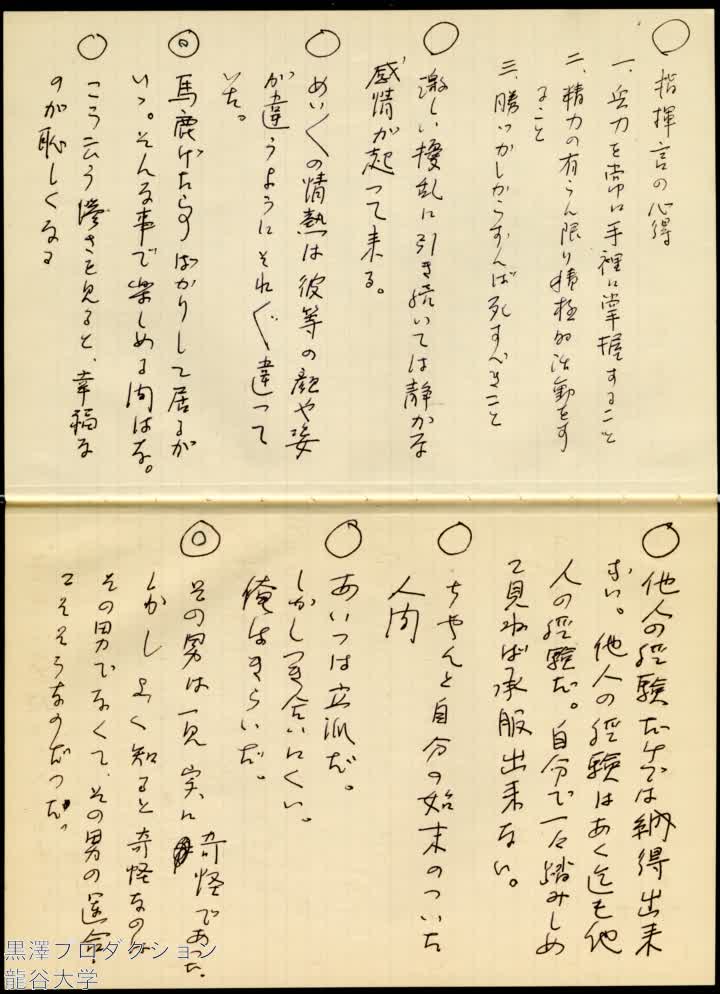 ○ 指揮官の心得
一、兵力を常に手裡に掌握すること
二、精力の有らん限り積極的活動をす
ること
三、勝いかしからずんば死すべきこと
○ 激しい擾乱に引き続いては静かな
感情が起って来る。
○ めい〱の情熱は彼等の顔や姿
が違うようにそれ〲違って
いた。
◎ 馬鹿げたらばかりして居るが
いゝ。そんな事で楽しめる間はな。
○ こう云う 惨さを見ると、幸福な
のが恥しくなる
○ 他人の経験だけでは納得出来
ない。他人の経験はあく迄も他
人の経験だ。自分で一々踏みしめ
て見ねば承服出来ない。
○ ちゃんと自分の始末のついた
人間
○ あいつは立派だ。
しかしつき合いにくい。
俺はきらいだ。
◎ その男は一見 実に 奇怪であった。
しかし よく知ると奇怪なのは
その男でなくて、その男の運命
こそそうなのだった。
黒澤プロダクション
龍谷大学